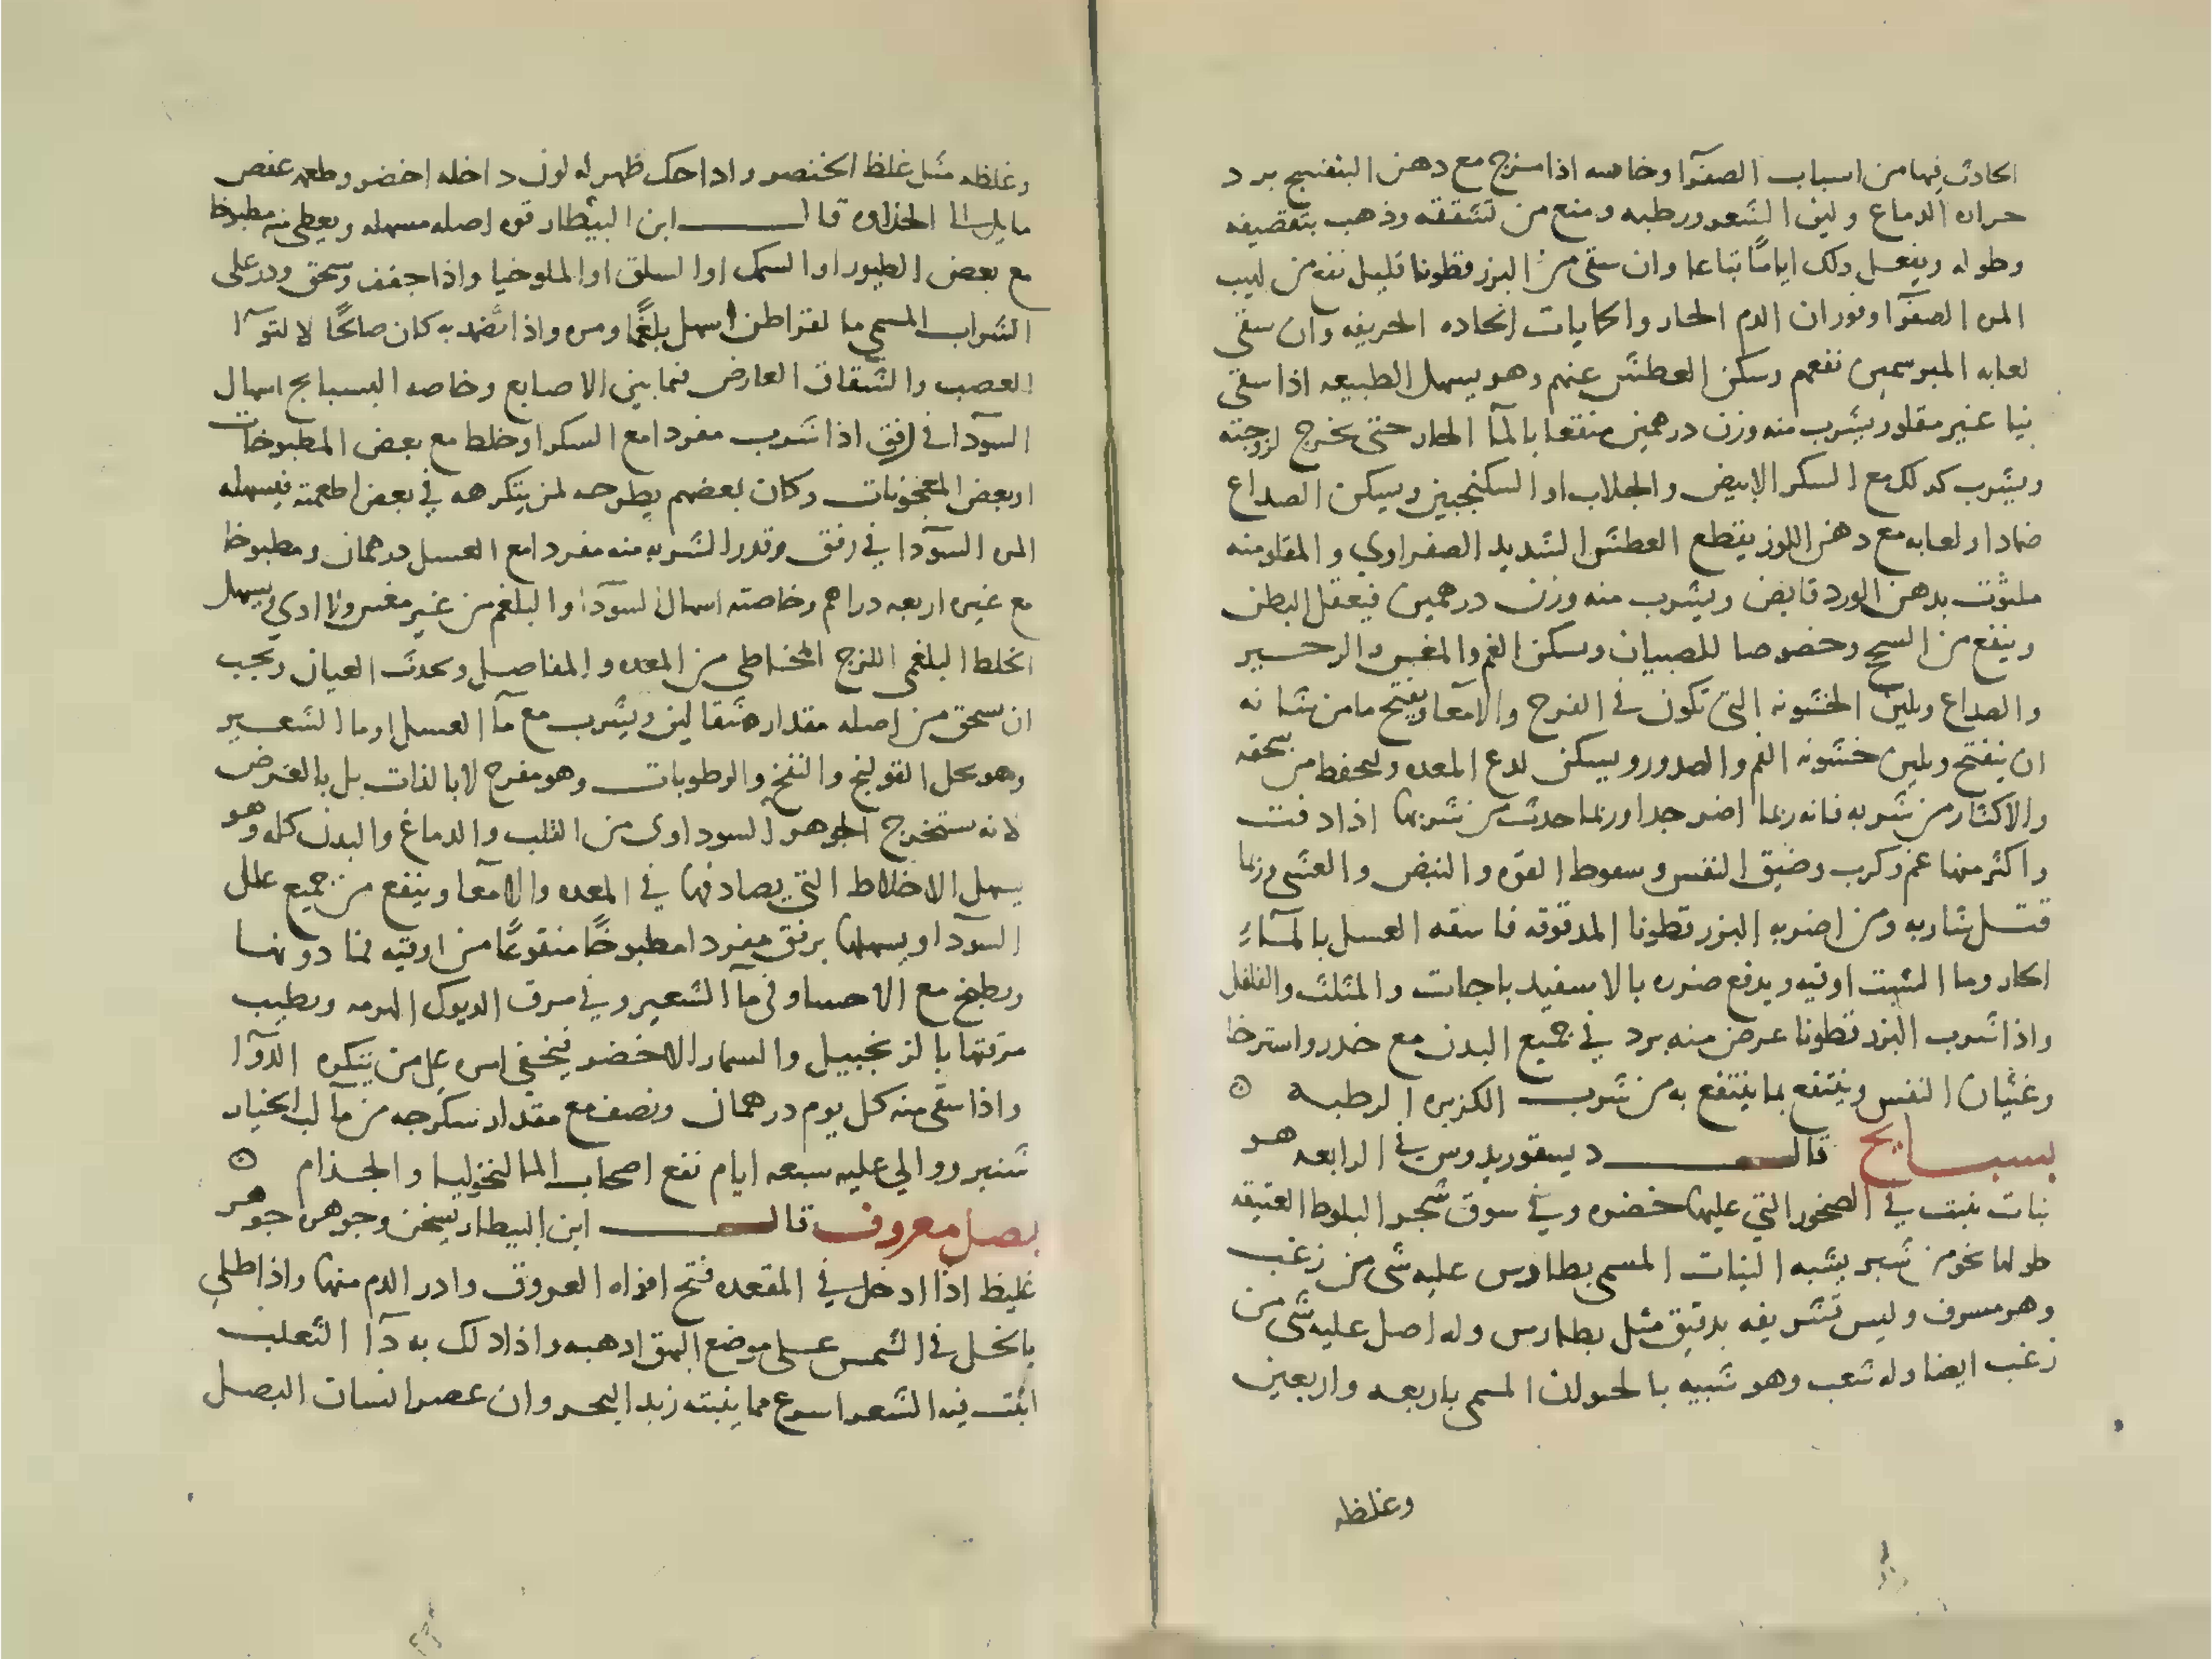 الحادث فيها من اسباب الصفرآ وخاصه اذا مزج مع دهن البنفسج برد
حراره الدماغ ولين الشعر ورطبه ومنع من تشققه وذهب بتقصيفه
وطوله ويفعل ذلك اياما تباعا وان سقي من البزر قطونا قليل نفع من لهيب
المره الصفرآ وفوران الدم الحار والحمايات الحاده الحريفه وان سقي
لعابه المبرسمين نفعهم وسكن العطش عنهم وهو يسهل الطبيعه اذا سقي
نيا غير مقلو ويشرب منه وزن درهمين منقعا بالمآ الحار حتى يخرج لزوجته
ويشرب كذلك مع السكر الابيض والجلاب او السكنجبين ويسكن الصداع
ضمادا ولعابه مع دهن اللوز يقطع العطش الشديد الصفراوي والمقلو منه
ملتوت بدهن الورد قابض ويشرب منه وزن درهمين فيعقل البطن
وينفع من السحج وخصوصا للصبيان وسكن الغم والمغس والزحير
والصداع ويلين الخشونه التي تكون في الفرج والامعا ويفتح ما من شانه
ان ينفتح ويلين خشونه الفم والصدور ويسكن لدع المعده وليحفظ من سحقه
والاكثار من شربه فانه ربما اضر جدا وربما حدث من شربها اذا دقت
واكثر منها غم وكرب وضيق النفس وسقوط القوه والنبض والغشي وربما
قتل شاربه ومن اضر به البزر قطونا المدقوقه فاسقه العسل بالمآء
الحار وما الشبت اوقيه ويدفع ضرره بالاسفيد باجات والمثلث والفلفل
واذا شرب البزر قطونا عرض منه برد في جميع البدن مع خدر واسترخا
وغثيان النفس وينتفع بما ينتفع به من شرب الكزبره الرطبه ۞
بسبايج قال ديسقوريدوس في الرابعه هو
نبات ينبت في الصخور التي عليها خضره وفي سوق شجر البلوط العتيقه
طولها نحو من شبر يشبه النبات المسمى بطارس عليه شى من زغب
وهو مسرف وليس تشريفه بدقيق مثل بطارس وله اصل عليه شى من
زغب ايضا وله شعب وهو شبيه بالحيوان المسمى باربعه واربعين
وغلظه
وغلظه مثل غلظ الخنصر واذا حك ظهر له لون داخله اخضر وطعمه عفص
مايل الى الحلاوه قال ابن البيطار قوه اصله مسهله ويعطى منه مطبوخا
مع بعض الطيور او السمك او السلق او الملوخيا واذا جفف وسحق وذر على
الشراب المسمى مالقراطن اسهل بلغما ومره واذا تضمد به كان صالحا لالتوآ
العصب والشقاق العارض فيما بين الاصابع وخاصه البسبايج اسهال
السودا في رفق اذا شرب مفردا مع السكر او خلط مع بعض المطبوخات
او بعض المعجونات وكان بعضهم يطرحه لمن يتكرهه في بعض اطعمته فيسهله
المره السودا في رفق وقدر الشربه منه مفردا مع العسل درهمان ومطبوخا
مع غيره اربعه دراهم وخاصته اسهال السودا والبلغم من غير مغس ولا ادى ويسهل
الخلط البلغمي اللزج المخاطي من المعده والمفاصل ويحدث الغيان ويجب
ان يسحق من اصله مقدار مثقالين ويشرب مع مآ العسل او ما الشعير
وهو يحل القولنج والنفخ والرطوبات وهو مفرح لا بالذات بل بالعرض
لانه يستخرج الجوهر السوداوى من القلب والدماغ والبدن كله وهو
يسهل الاخلاط التي يصادفها في المعده والامعا وينفع من جميع علل
السودا ويسهلها برفق مفردا مطبوخا منقوعا من اوقيه فما دونها
ويطبخ مع الاحسا وفي مآ الشعير وفي مرق الديوك الهرمه ويطيب
مرقتها بالزنجبيل والسمار الاخضر فيخفي امره على من يتكره الدوآ
واذا سقى منه كل يوم درهمان ونصف مع مقدار سكرجه من مآ لب الخيار
شنبر ووالي عليه سبعه ايام نفع اصحاب المالنخوليا والجذام ۞
بصل معروف قال ابن البيطار يسخن وجوهره جوهر
غليظ اذا ادخل في المقعده فتح افواه العروق وادر الدم منها واذا طلي
بالخل في الشمس على موضع البهق ادهبه واذا دلك به دآ الثعلب
انبت فيه الشعر اسرع مما ينبته زبد البحر وان عصر انسان البصل